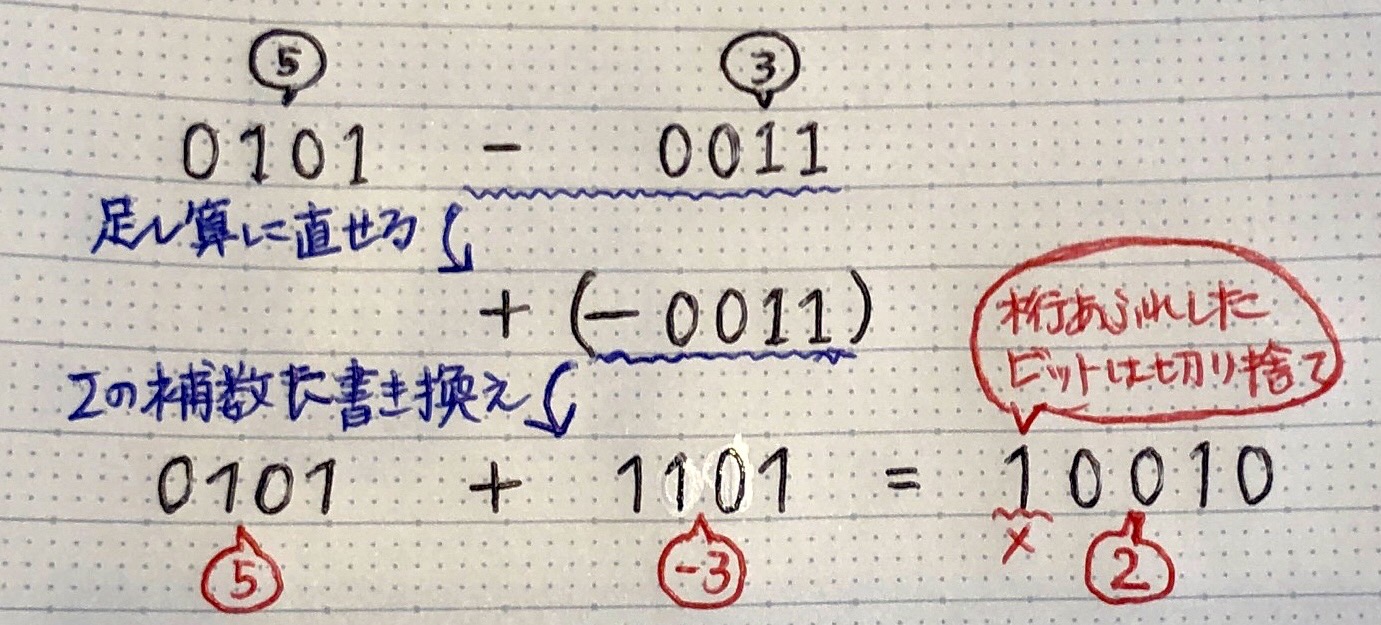 5 3
0101 - 0011
足し算に直せる
+ (-0011)
桁あふれした
ビットは切り捨て
2の補数に書き換え
0101 + 1101 = 10010
5 -3 × 2